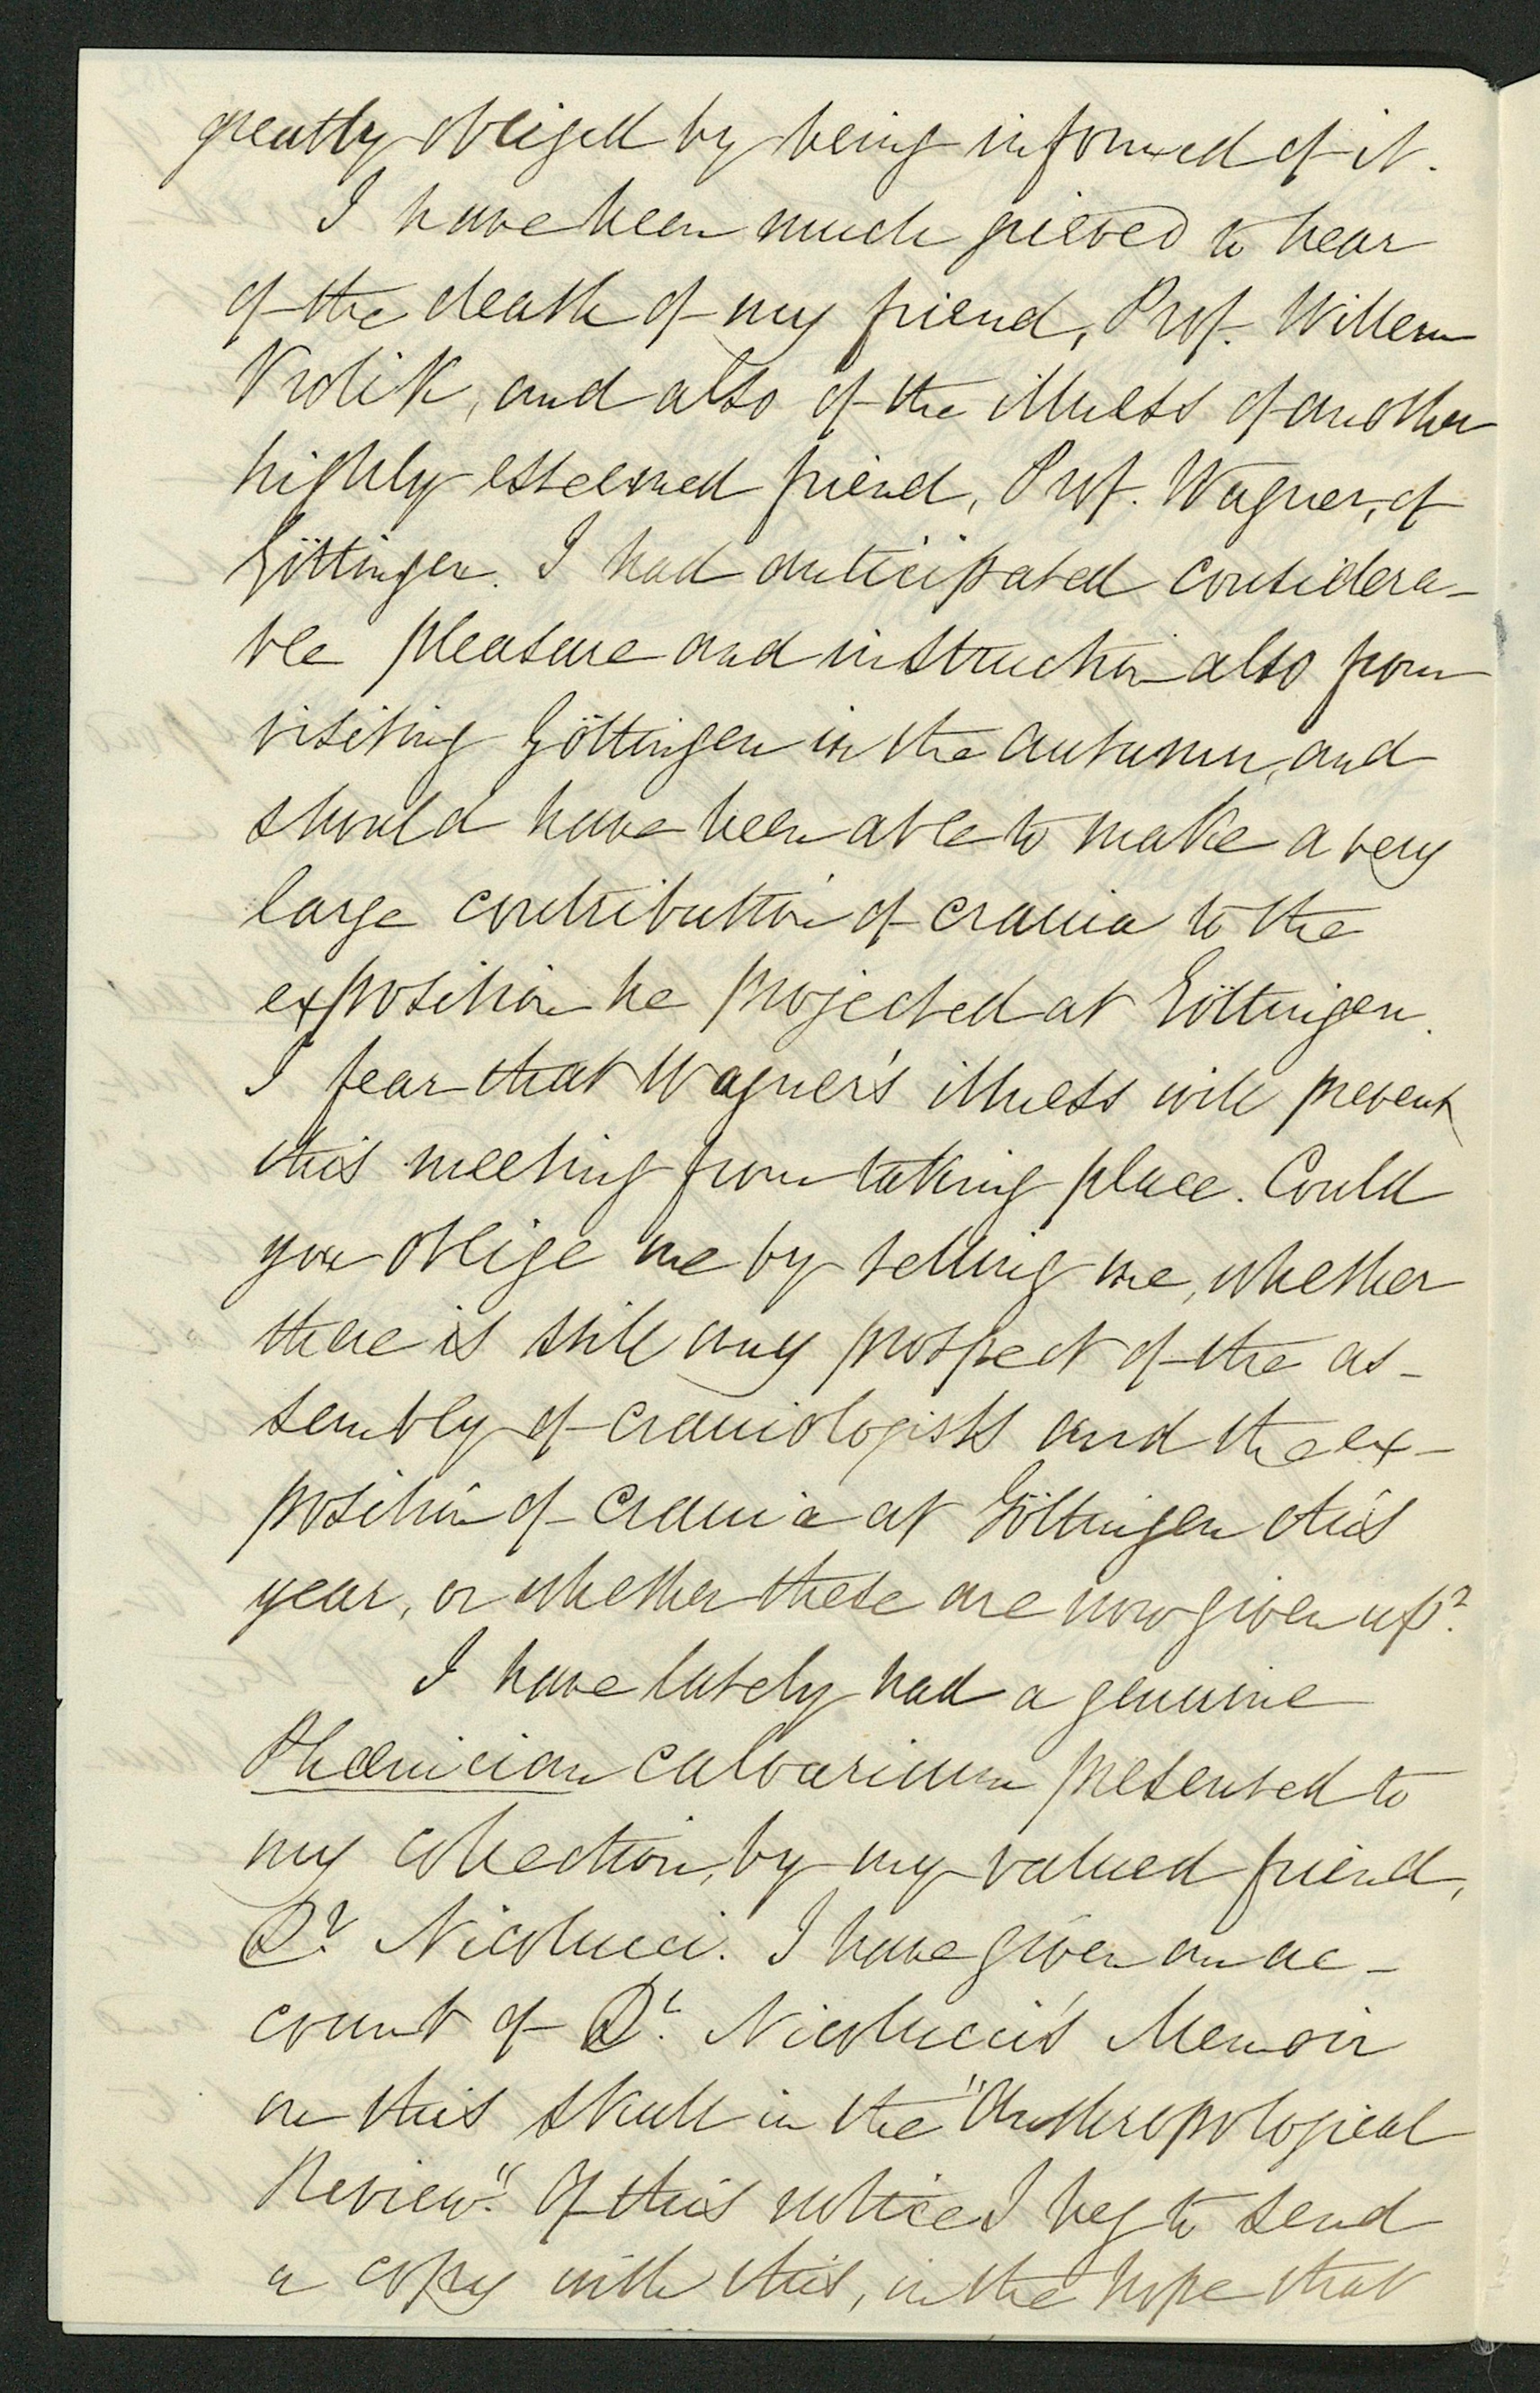 greatly obliged by being informed of it.
I have been much grieved to hear
of the death of my friend, Prof. Willem
Vrolik, and also of the illness of another
highly esteemed friend, Prof. Wagner, of
Göttingen. I had anticipated considera-
ble pleasure and instruction also from
visiting Göttingen in the autumn, and
should have been able to make a very
large contribution of crania to the
exposition he projected at Göttingen.
I fear that Wagner's illness will prevent
this meeting from taking place. Could
you oblige me by telling me, whether
there is still any prospect of the as-
sembly of craniologists and the ex-
position of crania at Göttingen this
year, or whether these are now given up?
I have lately had a genuine
Phœnician calvarium presented to
my collection, by my valued friend,
Dr. Nicolucci. I have given an ac-
count of Dr. Nicolucci's Memoir
on this skull in the "Anthropological
Review." Of this notice I beg to send
a copy with this, in the hope that